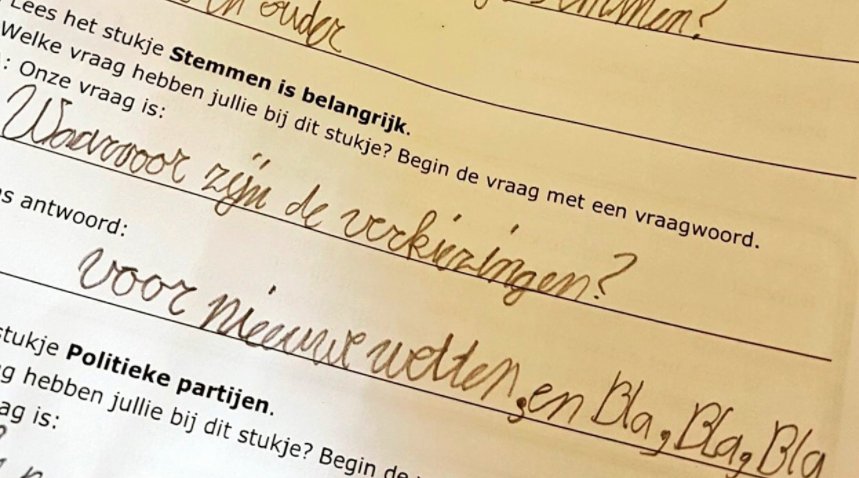 in ouder
stemmen?
Lees het stukje Stemmen is belangrijk.
Welke vraag hebben jullie bij dit stukje? Begin de vraag met een vraagwoord.
: Onze vraag is:
Waarvoor zijn de verkiezingen?
s antwoord:
voor nieuwe wetten, en Bla, Bla, Bla
stukje Politieke partijen.
g hebben jullie bij dit stukje? Begin de
ag is: